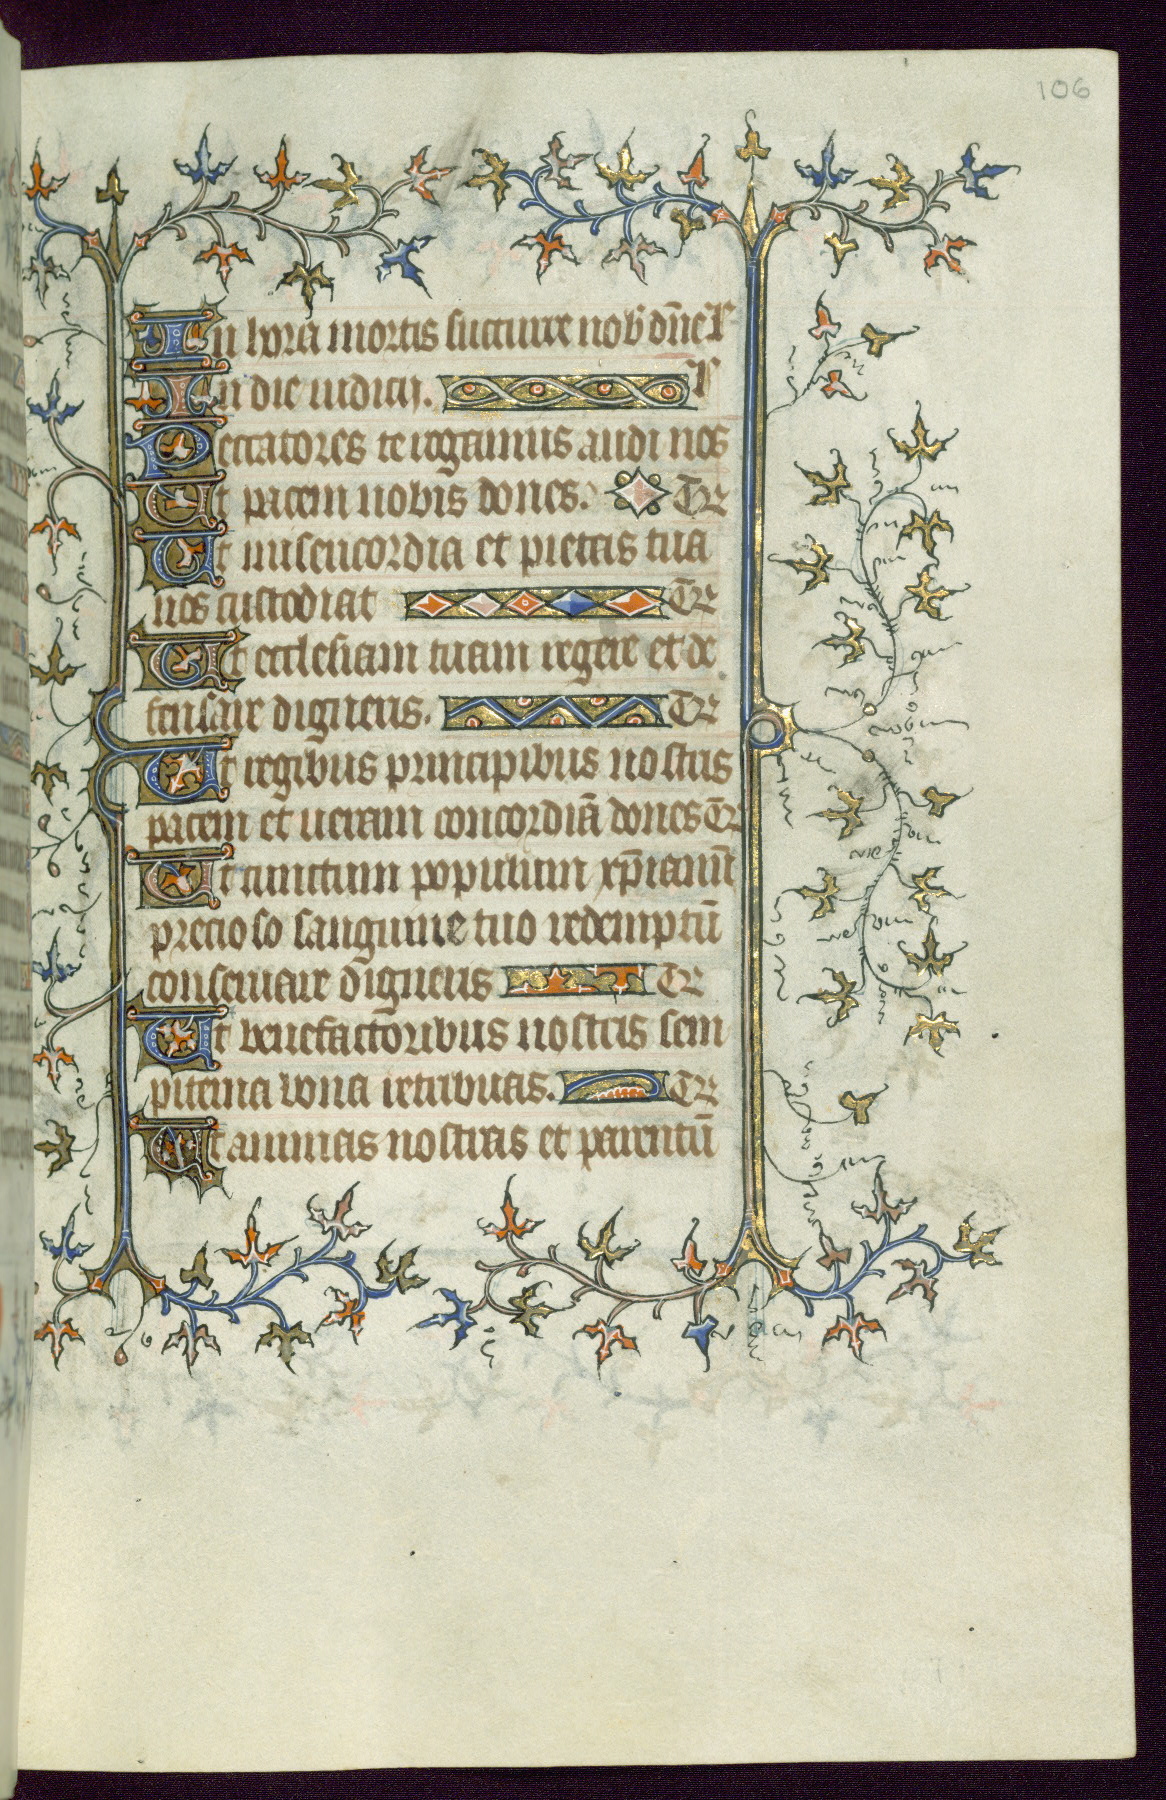 106
In hora mortis succurre nob̄ dn̄e l'
In die iudicij. l'
Peccatores te rogamus audi nos
Ut pacem nobis dones. Te
Ut misericordia et pietas tua
nos custodiat Te
Ut ecclesiam tuam regere et de
fensare digneris. Te
Ut regibus principibus nostris
pacem et ueram concordiā dones Te
Ut cunctum populum xp̄ianū
precioso sanguine tuo redemptū
conseruare digneris Te
Ut benefactoribus nostris sem
piterna bona retribuas. Te
Ut animas nostras et parentū